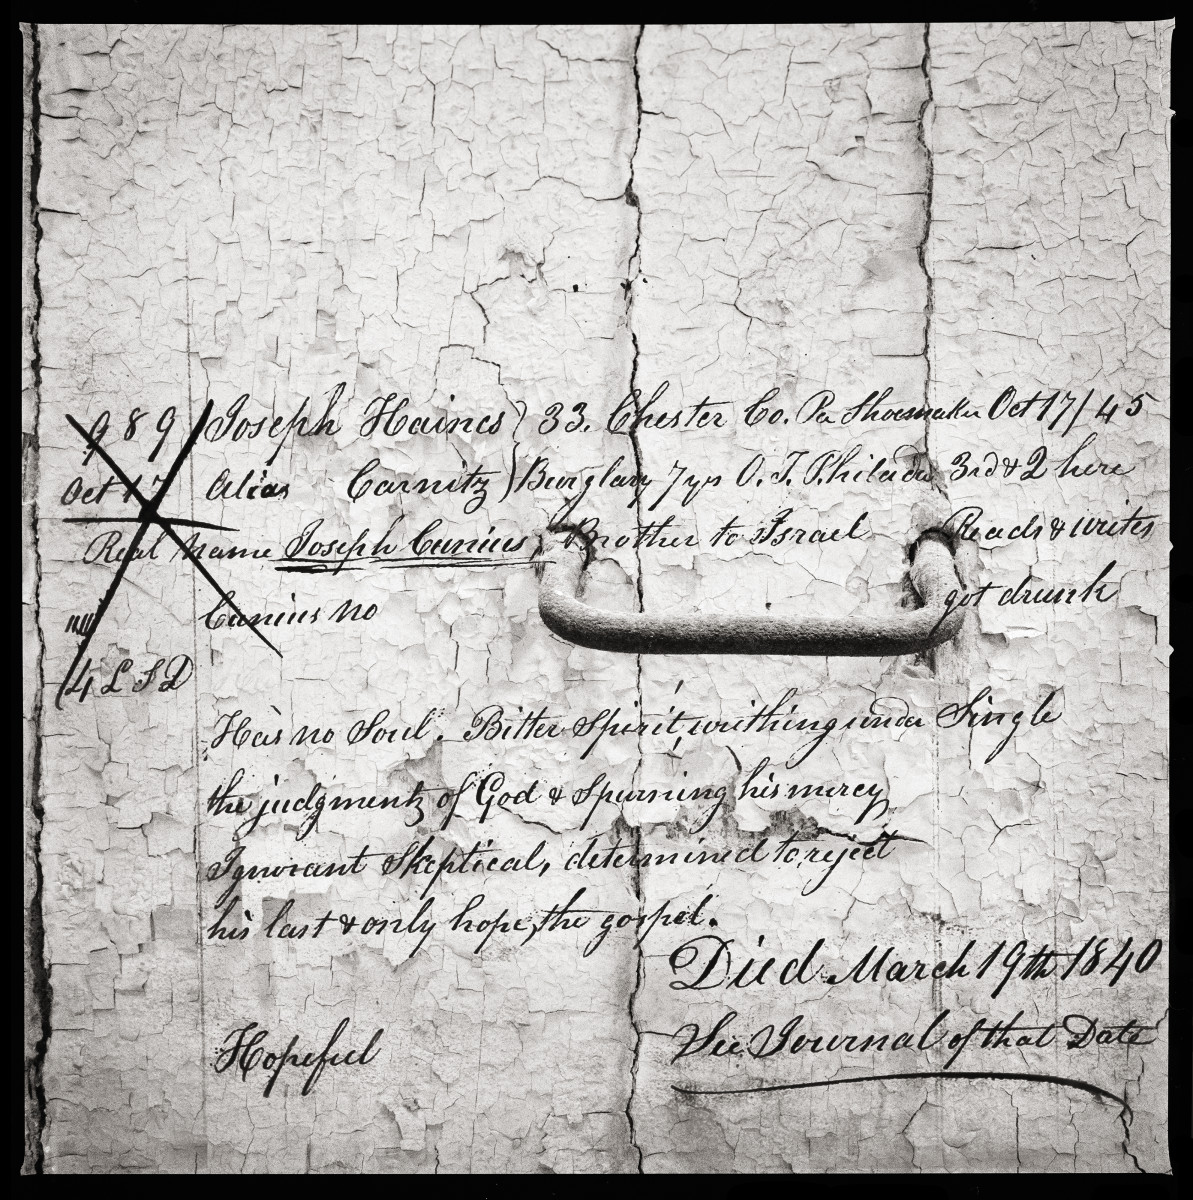 989 Joseph Haines) 33. Chester Co. Pa Shoemaker Oct 17/45
Oct 17 Alias Carnitz) Burglary 7 yrs O. T. Philada 3rd & 2 here
Real Name Joseph Cunius, Brother to Israel Reads & writes
Cunius no got drunk
4 L S D
Has no Soul. Bitter Spirit, writhing under Single
the judgments of God & Spurning his mercy
Ignorant Skeptical, determined to reject
his last & only hope, the gospel.
Died March 19th 1840
Hopeful See Journal of that Date